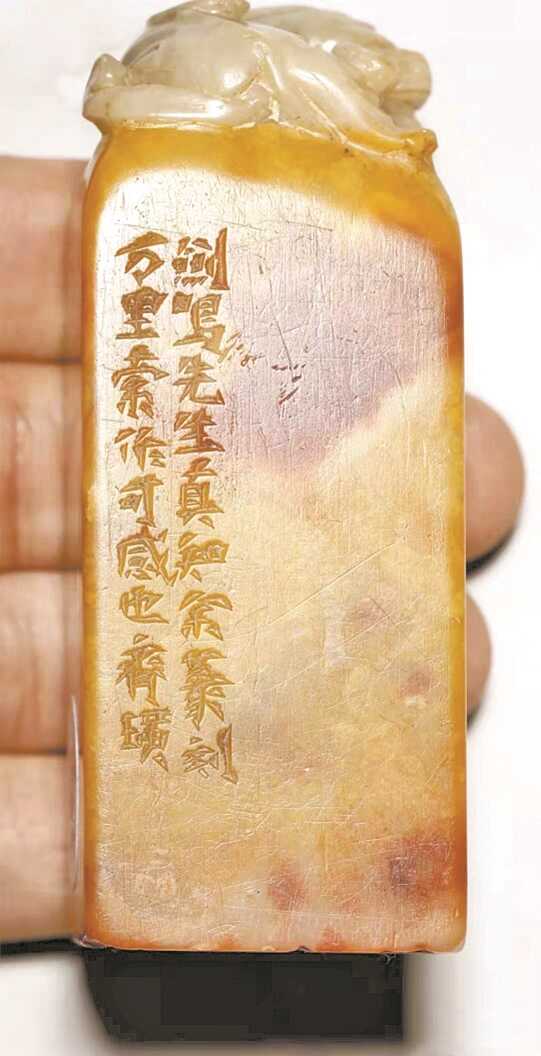 劍鳴先生真知余篆刻
万里索作可感也齊璜